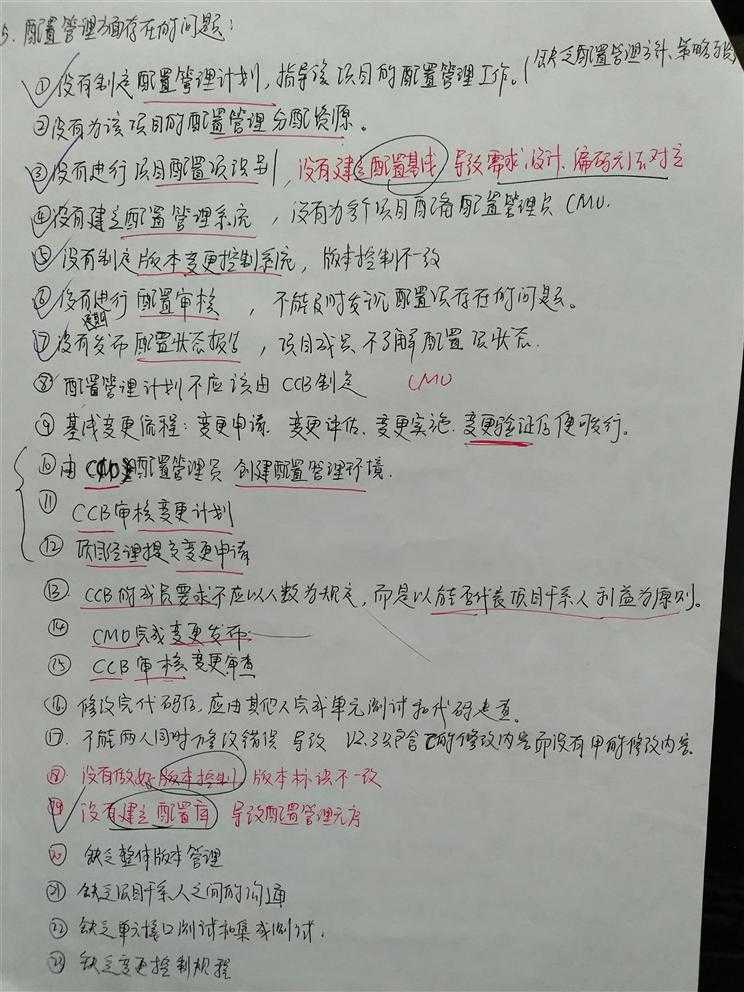 5. 配置管理方面存在的问题：
①没有制定配置管理计划，指导该项目的配置管理工作。（缺乏配置管理方针、策略
②没有为该项目的配置管理分配资源。
③没有进行项目配置项识别，没有建立配置基线 导致需求、设计、编码无法对应
④没有建立配置管理系统，没有为多个项目配备配置管理员 CMO.
⑤没有制定版本变更控制系统，版本控制不一致
⑥没有进行配置审核，不能及时发现配置项存在的问题。
⑦没有定期发布配置状态报告，项目成员不了解配置项状态.
⑧配置管理计划不应该由CCB制定 CMO
⑨基线变更流程：变更申请、变更评估、变更实施、变更验证后便可发行。
⑩由CMO配置管理员 创建配置管理环境.
⑪CCB审核变更计划
⑫项目经理提交变更申请
⑬CCB的成员要求不应以人数为规定，而是以能否代表项目干系人利益为原则。
⑭CMO完成变更发布.
⑮CCB审核变更审查
⑯修改完代码后,应由其他人完成单元测试和代码走查。
⑰不能两人同时修改错误 导致 V2.3只包含乙的修改内容而没有甲的修改内容.
⑱没有做好版本控制,版本标识不一致
⑲没有建立配置库 导致配置管理无序
⑳缺乏整体版本管理
㉑缺乏项目干系人之间的沟通
㉒缺乏单元接口测试和集成测试.
㉓缺乏变更控制规程